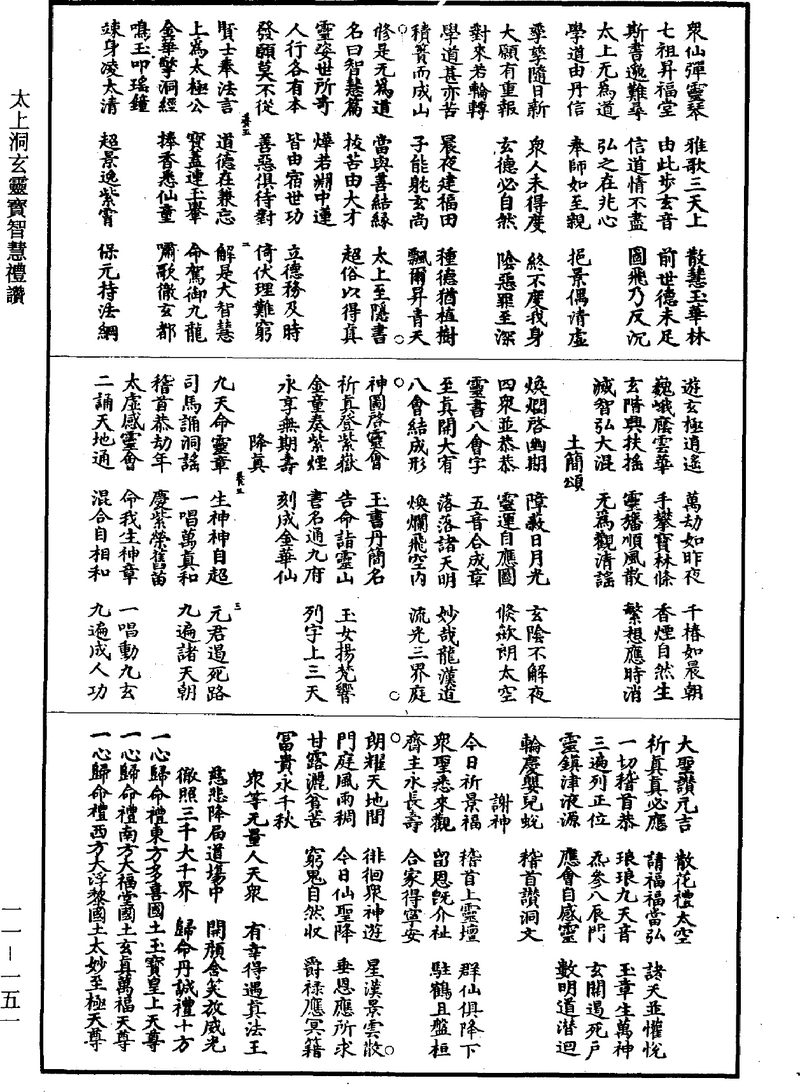 太上洞玄靈寶智慧禮讚
一一—一五一
衆仙彈靈琴 雅歌三天上 散慧玉華林
七祖昇福堂 由此步玄音 前世德未足
斯書邈難尋 信道情不盡 圓飛乃反沉
太上无為道 弘之在兆心
學道由丹信 奉師如至親 挹景偶清虛
孳孳隨日新 衆人未得度 終不度我身
大願有重報 玄德必自然 陰惡罪至深
對來若輪轉
學道甚亦苦 晨夜建福田 種德猶植樹
積簣而成山 子能躭玄尚 飄爾昇青天
修是无為道 當與善結緣 太上至隱書
名曰智慧篇 拔苦由大才 超俗以得真
靈姿世所奇 燁若淵中蓮
人行各有本 皆由宿世功 立德務及時
發願莫不從 善惡俱待對 倚伏理難窮
賢士奉法言 道德在兼忘 解是大智慧
上為太極公 寶蓋連玉轝 命駕御九龍
金華擎洞經 捧香悉仙童 嘯歌徹玄都
鳴玉叩瑤鐘
竦身凌太清 超景逸紫霄 保元持法綱
遊玄極逍遙 萬劫如昨夜 千椿如晨朝
巍峨䕃雲華 手攀寶林條 香煙自然生
玄階興扶搖 靈旛順風散 繁想應時消
滅智弘大混 无為觀清謠
土簡頌
煥爛啓幽期 障蔽日月光 玄陰不解夜
四衆並恭恭 靈運自應圓 倏歘朗太空
靈書八會字 五音合成章
至真開大有 落落諸天明 妙哉龍漢道
八會結成形 煥爛飛空內 流光三界庭
神圖啓靈會 玉書丹簡名
祈真登紫嶽 告命詣靈山 玉女揚梵響
金童奏紫煙 書名通九府 列字上三天
永享無期壽 刻成金華仙
降真
九天命靈章 生神神自超 元君遏死路
司馬誦洞謠 一唱萬真和 九遍諸天朝
稽首恭劫年 慶紫榮舊苗
太虛感靈會 命我生神章 一唱動九玄
二誦天地通 混合自相和 九遍成人功
大聖讚元吉 散花禮太空 諸天並懽悅
祈真真必應 請福福當弘 玉章生萬神
一切稽首恭 琅琅九天音 玄關遏死戶
三遍列正位 炁參八辰門 數明道潛迴
靈鎮津液源 應會自感靈
輪慶嬰兒蛻 稽首讚洞文
謝神
今日祈景福 稽首上靈壇 群仙俱降下
衆聖悉來觀 留恩既介祉 駐鶴且盤桓
齊主永長壽 合家得寧安
朗耀天地間 徘徊衆神遊 星漢景雲散
門庭風雨稠 今日仙聖降 垂恩應所求
甘露灑貧苦 窮鬼自然收 爵祿應冥籍
富貴永千秋
衆等无量人天衆 有幸得遇真法王
慈悲降局道場中 開顏含笑放威光
徹照三千大千界 歸命丹誠禮十方
一心歸命禮東方多喜國土玉寶皇上天尊
一心歸命禮南方大福堂國土玄真萬福天尊
一心歸命禮西方大浮黎國土太妙至極天尊